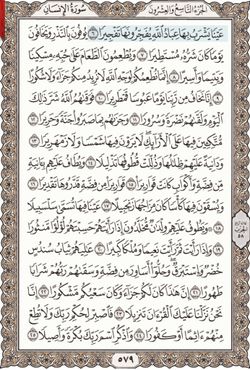 الجُزْءُ التَّاسِعُ وَالعِشْرُونَ
سُورَةُ الإِنسَان
عَيْنًا يَشْرَبُ بِهَا عِبَادُ ٱللَّهِ يُفَجِّرُونَهَا تَفْجِيرًا ٦ يُوفُونَ بِٱلنَّذْرِ وَيَخَافُونَ
يَوْمًا كَانَ شَرُّهُۥ مُسْتَطِيرًا ٧ وَيُطْعِمُونَ ٱلطَّعَامَ عَلَىٰ حُبِّهِۦ مِسْكِينًا
وَيَتِيمًا وَأَسِيرًا ٨ إِنَّمَا نُطْعِمُكُمْ لِوَجْهِ ٱللَّهِ لَا نُرِيدُ مِنكُمْ جَزَآءً وَلَا شُكُورًا
٩ إِنَّا نَخَافُ مِن رَّبِّنَا يَوْمًا عَبُوسًا قَمْطَرِيرًا ١٠ فَوَقَىٰهُمُ ٱللَّهُ شَرَّ ذَٰلِكَ
ٱلْيَوْمِ وَلَقَّىٰهُمْ نَضْرَةً وَسُرُورًا ١١ وَجَزَىٰهُم بِمَا صَبَرُوا۟ جَنَّةً وَحَرِيرًا ١٢
مُّتَّكِـِٔينَ فِيهَا عَلَى ٱلْأَرَآئِكِ لَا يَرَوْنَ فِيهَا شَمْسًا وَلَا زَمْهَرِيرًا ١٣
وَدَانِيَةً عَلَيْهِمْ ظِلَٰلُهَا وَذُلِّلَتْ قُطُوفُهَا تَذْلِيلًا ١٤ وَيُطَافُ عَلَيْهِم بِـَٔانِيَةٍ
مِّن فِضَّةٍ وَأَكْوَابٍ كَانَتْ قَوَارِيرَا۠ ١٥ قَوَارِيرَا۟ مِن فِضَّةٍ قَدَّرُوهَا تَقْدِيرًا ١٦
وَيُسْقَوْنَ فِيهَا كَأْسًا كَانَ مِزَاجُهَا زَنجَبِيلًا ١٧ عَيْنًا فِيهَا تُسَمَّىٰ سَلْسَبِيلًا
١٨ وَيَطُوفُ عَلَيْهِمْ وِلْدَٰنٌ مُّخَلَّدُونَ إِذَا رَأَيْتَهُمْ حَسِبْتَهُمْ لُؤْلُؤًا مَّنثُورًا
١٩ وَإِذَا رَأَيْتَ ثَمَّ رَأَيْتَ نَعِيمًا وَمُلْكًا كَبِيرًا ٢٠ عَٰلِيَهُمْ ثِيَابُ سُندُسٍ
خُضْرٌ وَإِسْتَبْرَقٌ وَحُلُّوٓا۟ أَسَاوِرَ مِن فِضَّةٍ وَسَقَىٰهُمْ رَبُّهُمْ شَرَابًا
طَهُورًا ٢١ إِنَّ هَٰذَا كَانَ لَكُمْ جَزَآءً وَكَانَ سَعْيُكُم مَّشْكُورًا ٢٢ إِنَّا
نَحْنُ نَزَّلْنَا عَلَيْكَ ٱلْقُرْءَانَ تَنزِيلًا ٢٣ فَٱصْبِرْ لِحُكْمِ رَبِّكَ وَلَا تُطِعْ
مِنْهُمْ ءَاثِمًا أَوْ كَفُورًا ٢٤ وَٱذْكُرِ ٱسْمَ رَبِّكَ بُكْرَةً وَأَصِيلًا ٢٥
٥٧٩